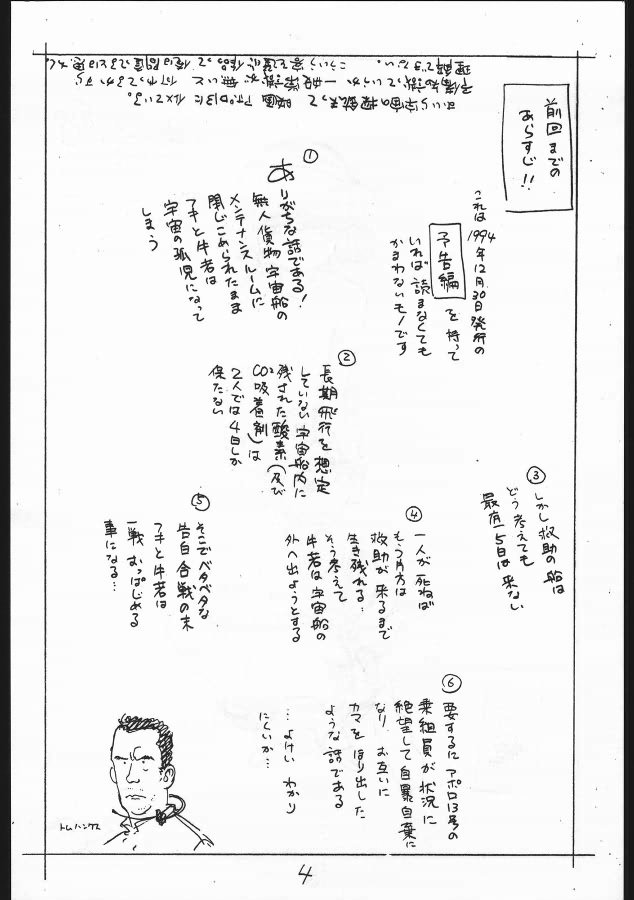 前回までの
あらすじ!!
これは
1994年12月30日発行の
予告編を持って
いれば読まなくても
かまわないモノです
①
ありがちな話である!
無人貨物宇宙船の
メンテナンスルームに
閉じこめられたまま
アキと牛若は
宇宙の孤児になって
しまう
②
長期飛行を想定
していない宇宙船内に
残された酸素(及び
CO²吸着剤)は
2人では4日しか
保たない
③
しかし救助の船は
どう考えても
最有15日は来ない
④
一人が死ねば
もう片方は
救助が来るまで
生き残れる…
そう考えて
牛若は宇宙船の
外へ出ようとする
⑤
そこでベタベタな
告白合戦の末
アキと牛若は
一戦おっぱじめる
事になる…
⑥
要するにアポロ13号の
乗組員が状況に
絶望して自暴自棄に
なり お互いに
カマをほり出した
ような話である
…よけいわかり
にくいか…
トムハンクス
4